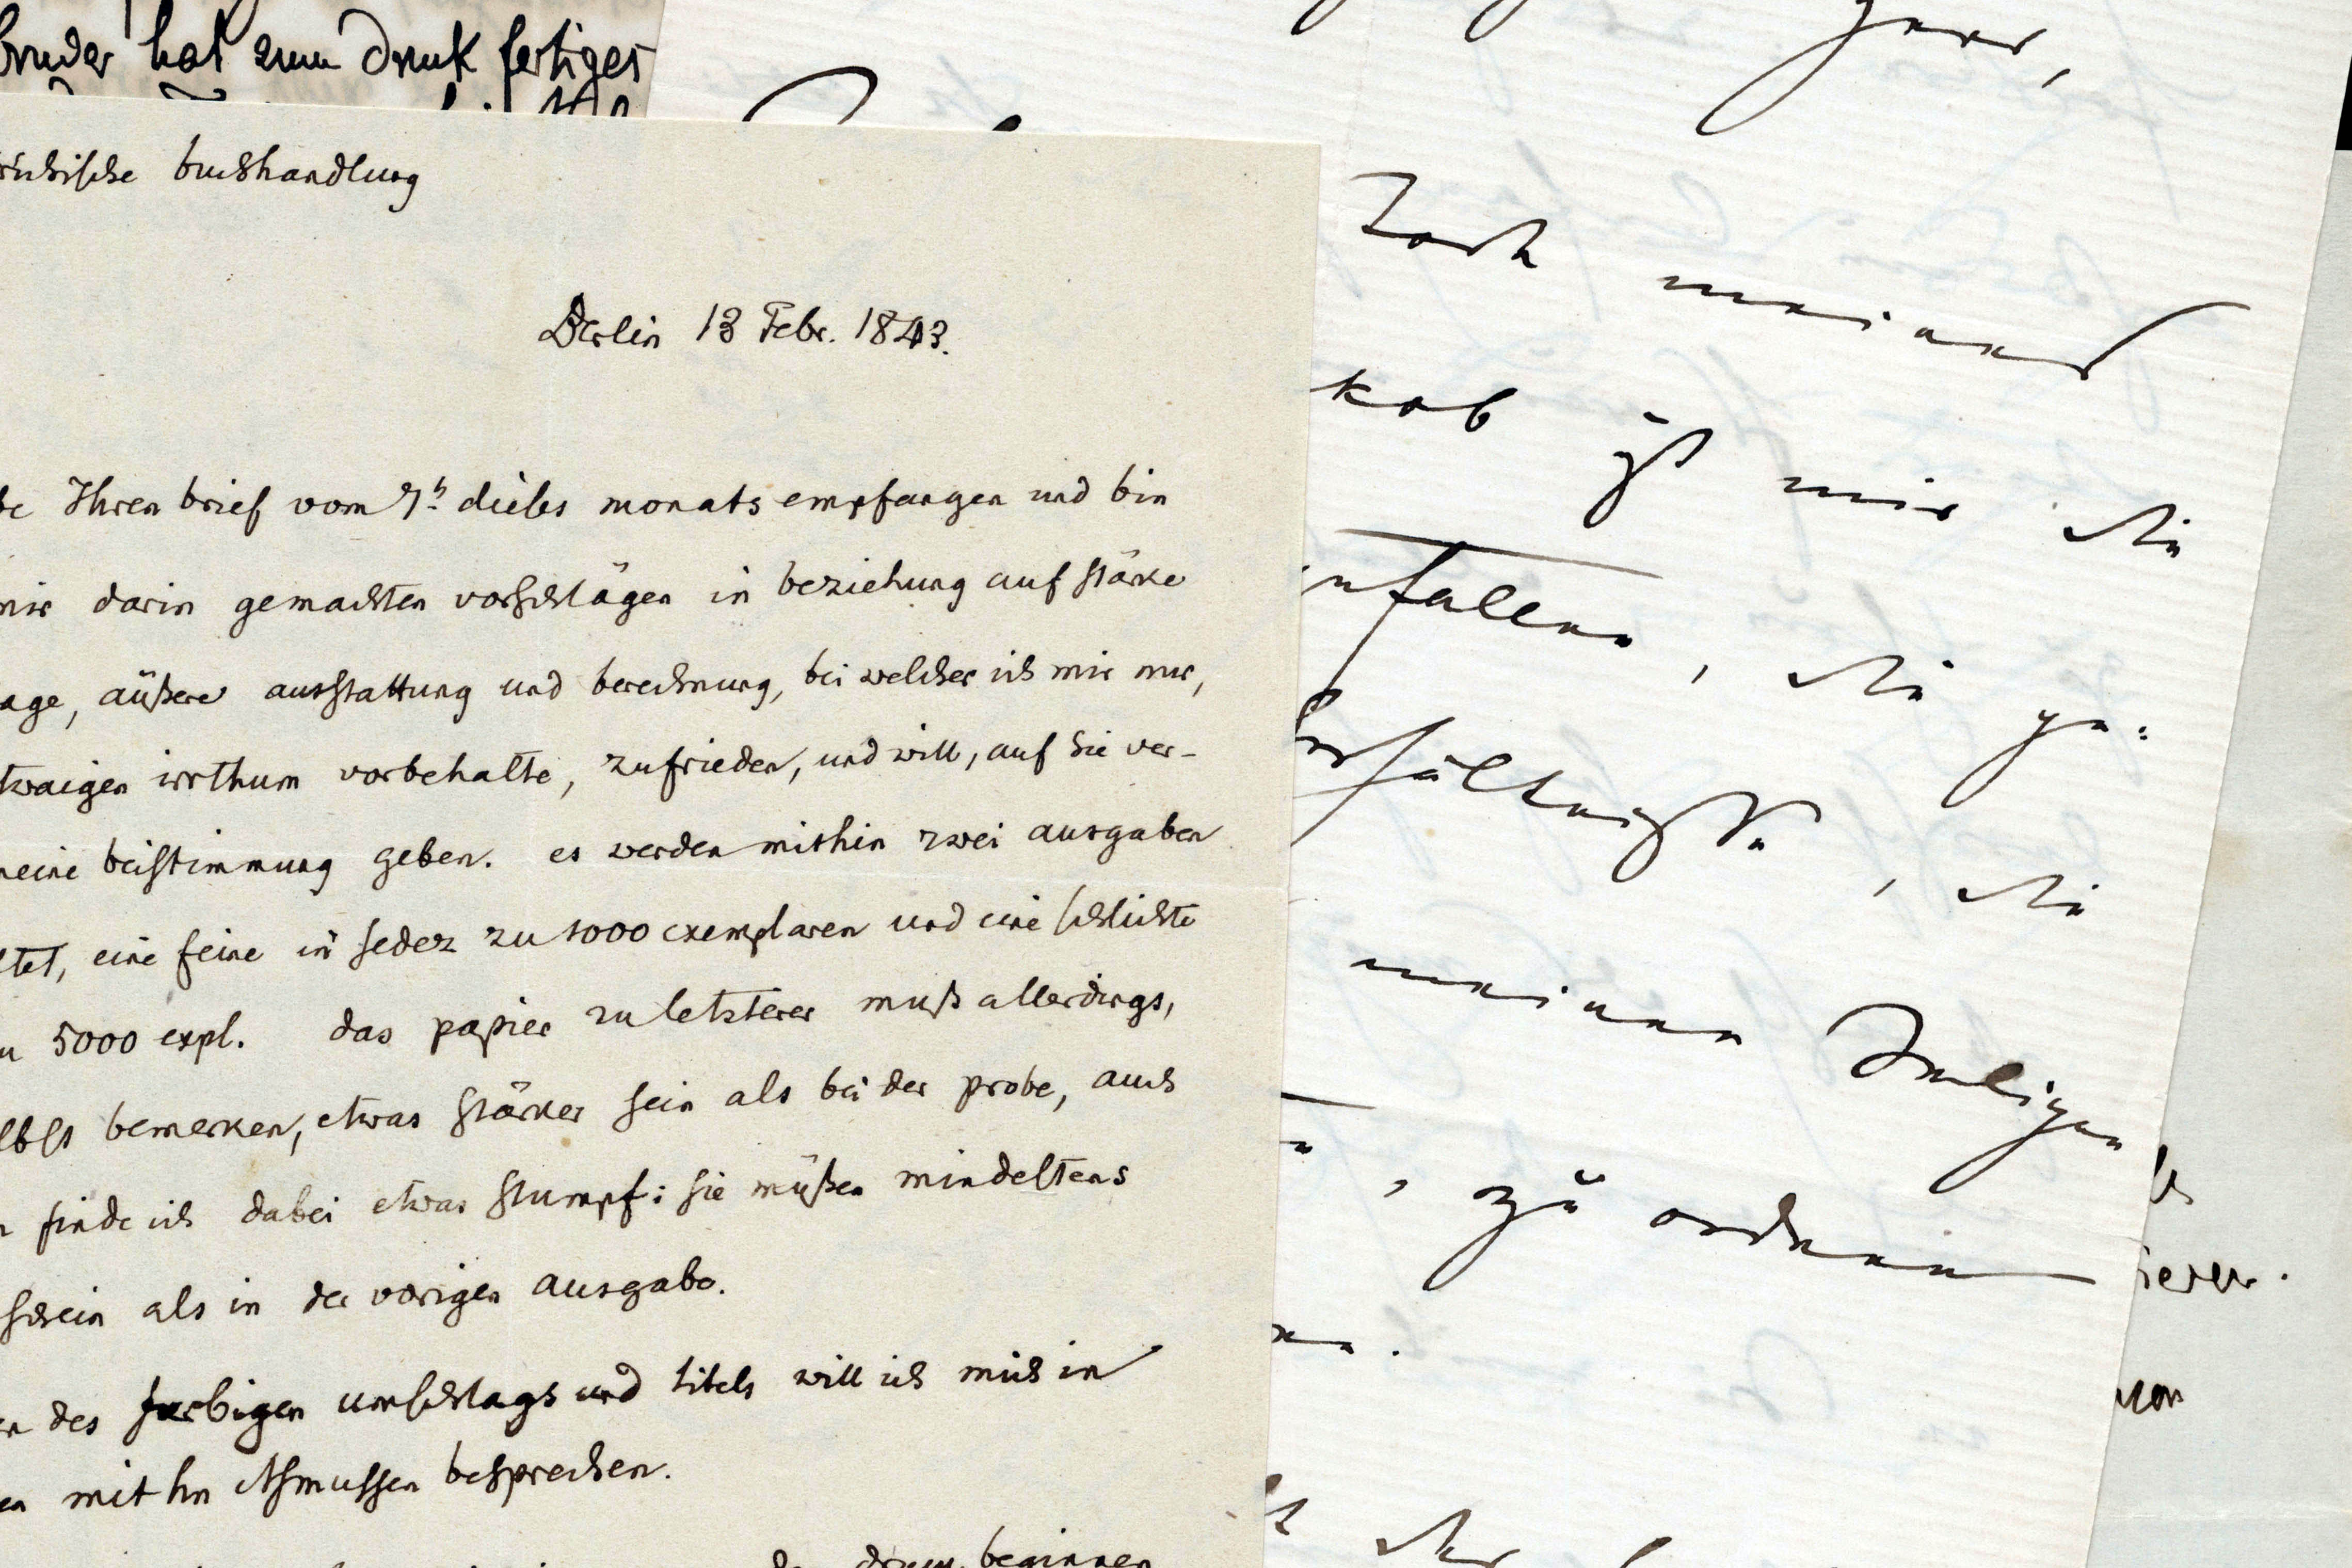 bruder hat zum Druck fertiges
buchhandlung
Berlin 13 Febr. 1843.
Ihren brief vom 7t dieses monats empfangen und bin
mir darin gemachten vorschlägen in beziehung auf stärke
age, äußere ausstattung und berechnung, bei welcher ich mir nur,
twaigen irrthum vorbehalte, zufrieden, und will, auf Sie ver-
meine beistimmung geben. es werden mithin zwei ausgaben
ltet, eine feine in sedez zu 1000 exemplaren und eine schlichte
u 5000 expl. das papier zu letzterer muß allerdings,
lbst bemerken, etwas stärker sein als bei der probe, auch
finde ich dabei etwas stumpf: sie müßen mindestens
schein als in der vorigen ausgabe.
des farbigen umschlags und titels will ich mich in
en mit hn Asmussen besprechen.
beginnen
Herr,
Tode meines
kob ist mir die
ntfallen, die ge-
erhältnisse, die
meines Seligen
, zu ordnen
ieser.
von